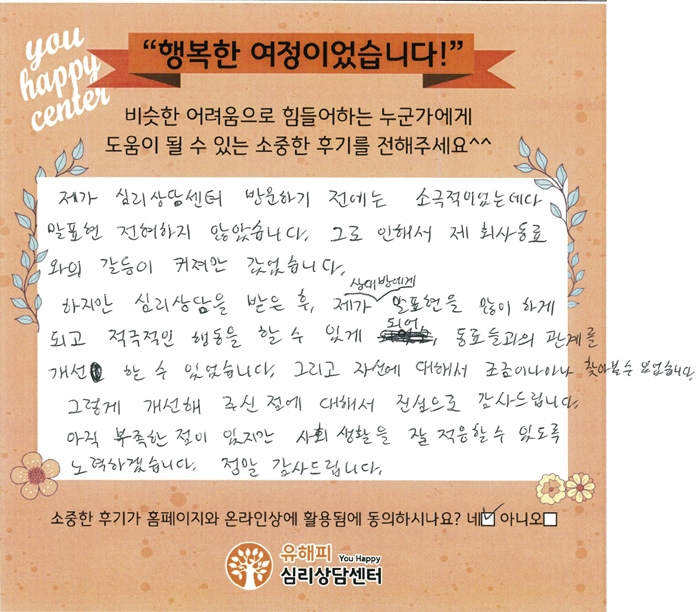 you
happy
center
“행복한 여정이었습니다!”
비슷한 어려움으로 힘들어하는 누군가에게
도움이 될 수 있는 소중한 후기를 전해주세요^^
제가 심리상담센터 방문하기 전에는 소극적이었는데다
말표현 전혀하지 않았습니다. 그로 인해서 제 회사동료
와의 갈등이 커져만 갔었습니다.
상대방에게
하지만 심리상담을 받은 후, 제가 말표현을 많이 하게
되고 적극적인 행동을 할 수 있게 되어, 동료들과의 관계를
개선 할 수 있었습니다. 그리고 자신에 대해서 조금이나마나 찾아볼수 있었습니다
그렇게 개선해 주신 점에 대해서 진심으로 감사드립니다.
아직 부족한 점이 있지만 사회 생활을 잘 적응할수 있도록
노력하겠습니다. 정말 감사드립니다.
소중한 후기가 홈페이지와 온라인상에 활용됨에 동의하시나요? 네☑ 아니오☐
유해피 You Happy
심리상담센터